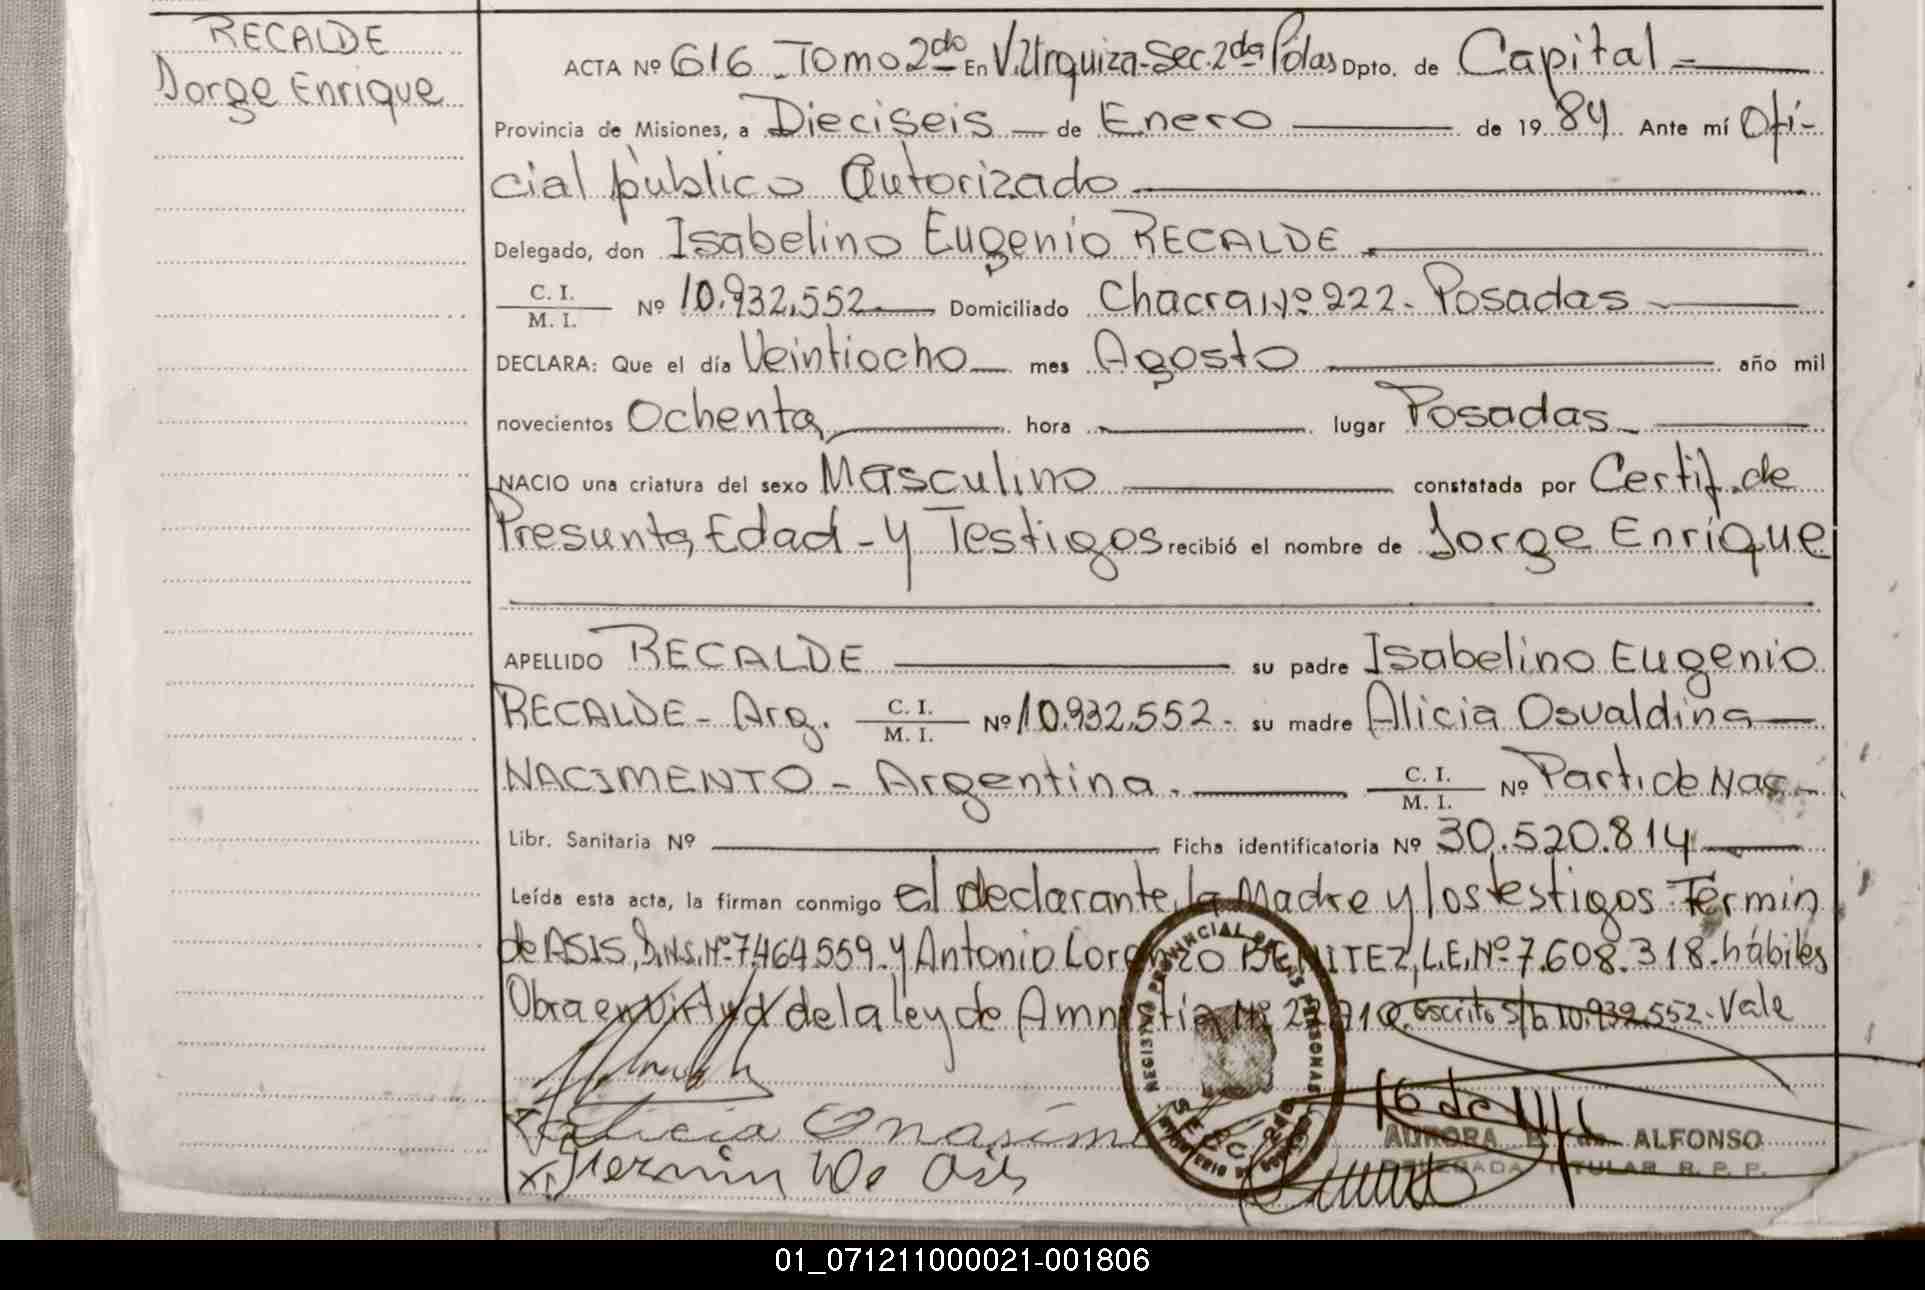 RECALDE
Jorge Enrique
ACTA Nº 616 Tomo 2do En V. Urquiza-Sec. 2da Pdas Dpto. de Capital
Provincia de Misiones, a Dieciseis de Enero de 1984 Ante mí Ofi-
cial público Autorizado
Delegado, don Isabelino Eugenio RECALDE
C. I.
M. I. Nº 10.932.552 Domiciliado Chacra Nº 222 - Posadas
DECLARA: Que el día Veintiocho mes Agosto año mil
novecientos Ochenta hora lugar Posadas
NACIO una criatura del sexo Masculino constatada por Certif. de
Presunta Edad - y Testigos recibió el nombre de Jorge Enrique
APELLIDO RECALDE su padre Isabelino Eugenio
RECALDE - Arg. C. I. M. I. Nº 10.932.552 - su madre Alicia Osvaldina
NACIMENTO - Argentina. C. I. M. I. Nº Part. de Nac
Libr. Sanitaria Nº Ficha identificatoria Nº 30.520.814
Leída esta acta, la firman conmigo el declarante, la Madre y los testigos Fermin
de ASIS, D.N.I. Nº 7464559 - y Antonio Lorenzo BENITEZ, L.E. Nº 7.608.318 - hábiles
Obra en virtud de la ley de Amnistia Nº escrito s/b 10.932.552. Vale
REGISTRO PROVINCIAL DE LAS PERSONAS
SECC. 2da
MINISTERIO DE GOBIERNO
Alicia
AURORA ALFONSO
DELEGADA TITULAR R. P. P.
Fermin De Asis
01_071211000021-001806